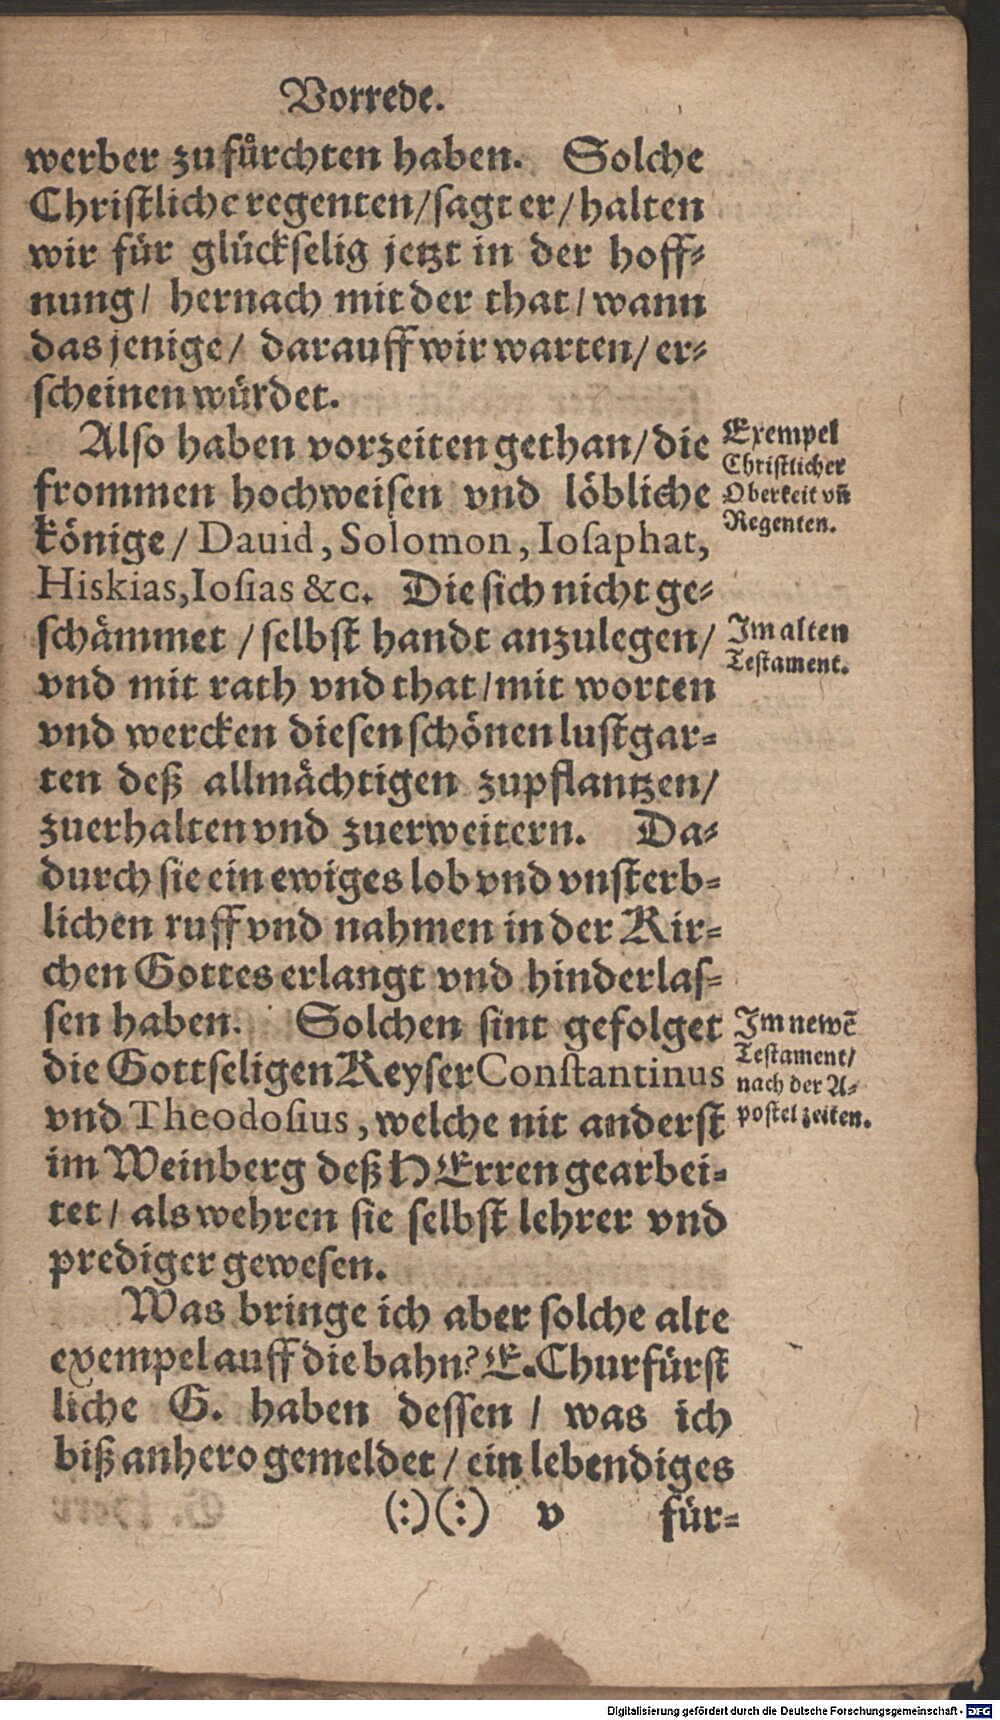 Vorrede.
werber zu fürchten haben. Solche
Christliche regenten/sagt er/halten
wir für glückselig jetzt in der hoff⸗
nung/ hernach mit der that/wann
das jenige/ darauff wir warten/er⸗
scheinen würdet.
Also haben vorzeiten gethan/die
frommen hochweisen vnd löbliche
könige/Dauid, Solomon, Iosaphat,
Hiskias, Iosias &c. Die sich nicht ge⸗
schämmet/selbst handt anzulegen/
vnd mit rath vnd that/mit worten
vnd wercken diesen schönen lustgar⸗
ten deß allmächtigen zupflantzen/
zuerhalten vnd zuerweitern. Da⸗
durch sie ein ewiges lob vnd vnsterb⸗
lichen ruff vnd nahmen in der Kir⸗
chen Gottes erlangt vnd hinderlas⸗
sen haben. Solchen sint gefolget
die Gottseligen Keyser Constantinus
vnd Theodosius, welche nit anderst
im Weinberg deß HErren gearbei⸗
tet/ als wehren sie selbst lehrer vnd
prediger gewesen.
Was bringe ich aber solche alte
exempel auff die bahn? E. Churfürst
liche G. haben dessen/ was ich
biß anhero gemeldet/ein lebendiges
(:)(:) v für⸗
Exempel
Christlicher
Oberkeit vñ
Regenten.
Im alten
Testament.
Im newē
Testament/
nach der A⸗
postel zeiten.
Digitalisierung gefördert durch die Deutsche Forschungsgemeinschaft - DFG